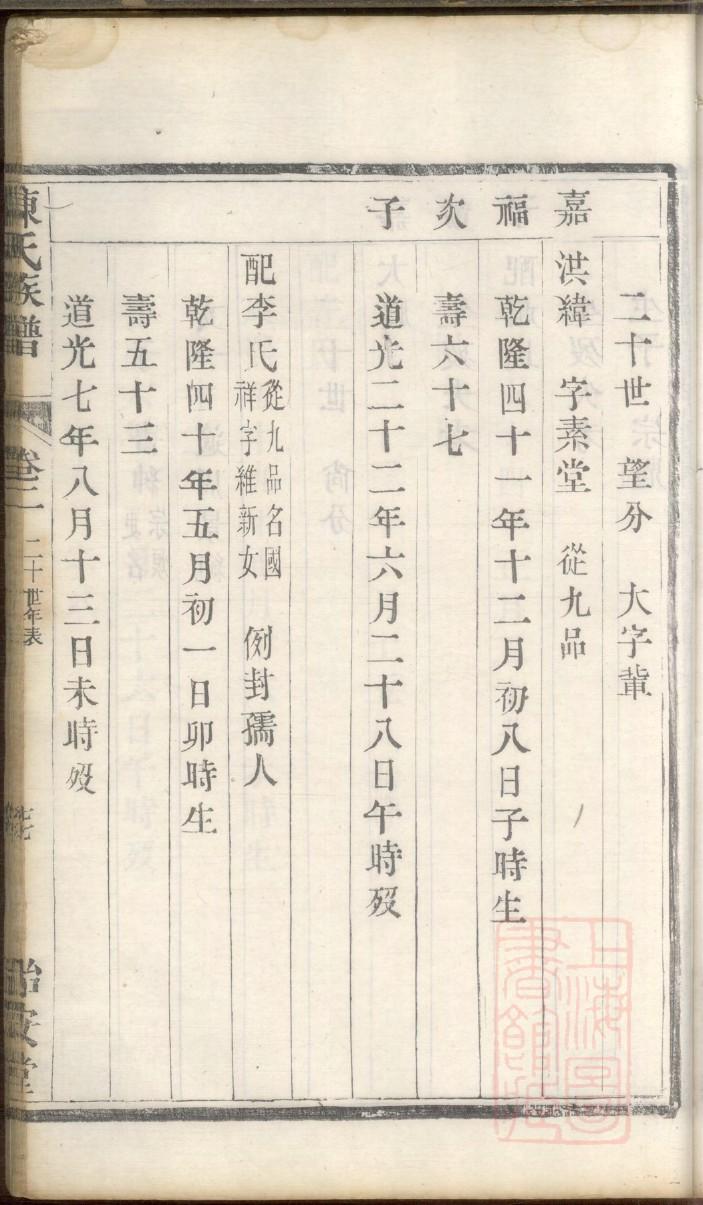 二十世 望分 大字輩
嘉福次子
洪緯 字素堂 從九品
乾隆四十一年十二月初八日子時生
壽六十七
道光二十二年六月二十八日午時歿
配李氏從九品名國祥字維新女 例封孺人
乾隆四十年五月初一日卯時生
壽五十三
道光七年八月十三日未時歿
陳氏族譜 卷二 二十世年表
上海圖書館藏